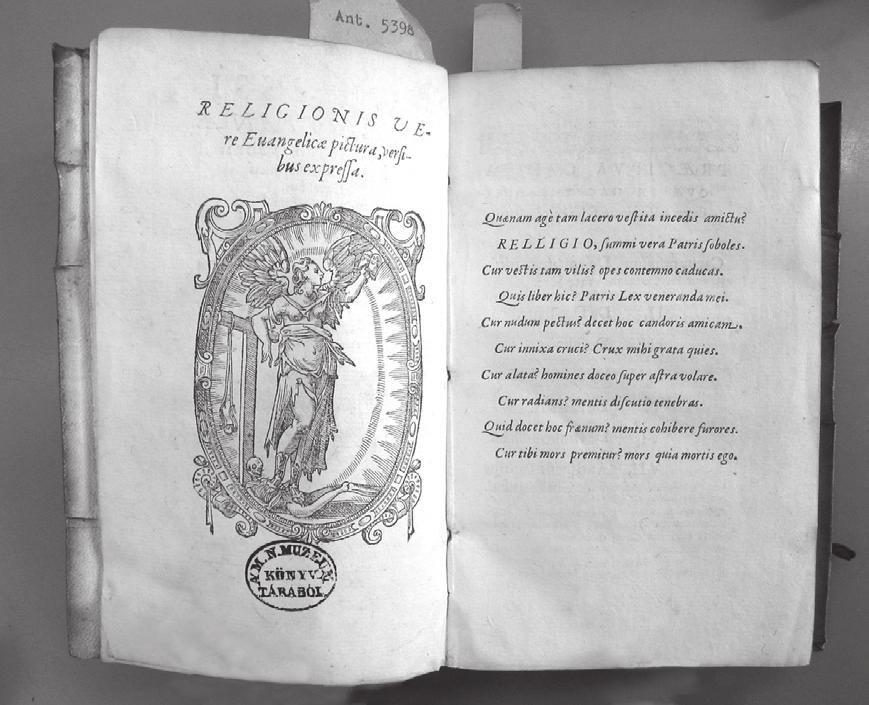 Ant. 5398
RELIGIONIS VE-
re Euangelicæ pictura, versi-
bus expressa.
A M. N. MUZEUM
KÖNYV
TÁRÁBÓL
Quænam agè tam lacero vestita incedis amictu?
RELLIGIO, summi vera Patris soboles.
Cur vestis tam vilis? opes contemno caducas.
Quis liber hic? Patris Lex veneranda mei.
Cur nudum pectus? decet hoc candoris amicam.
Cur innixa cruci? Crux mihi grata quies.
Cur alata? homines doceo super astra volare.
Cur radians? mentis discutio tenebras.
Quid docet hoc frænum? mentis cohibere furores.
Cur tibi mors premitur? mors quia mortis ego.